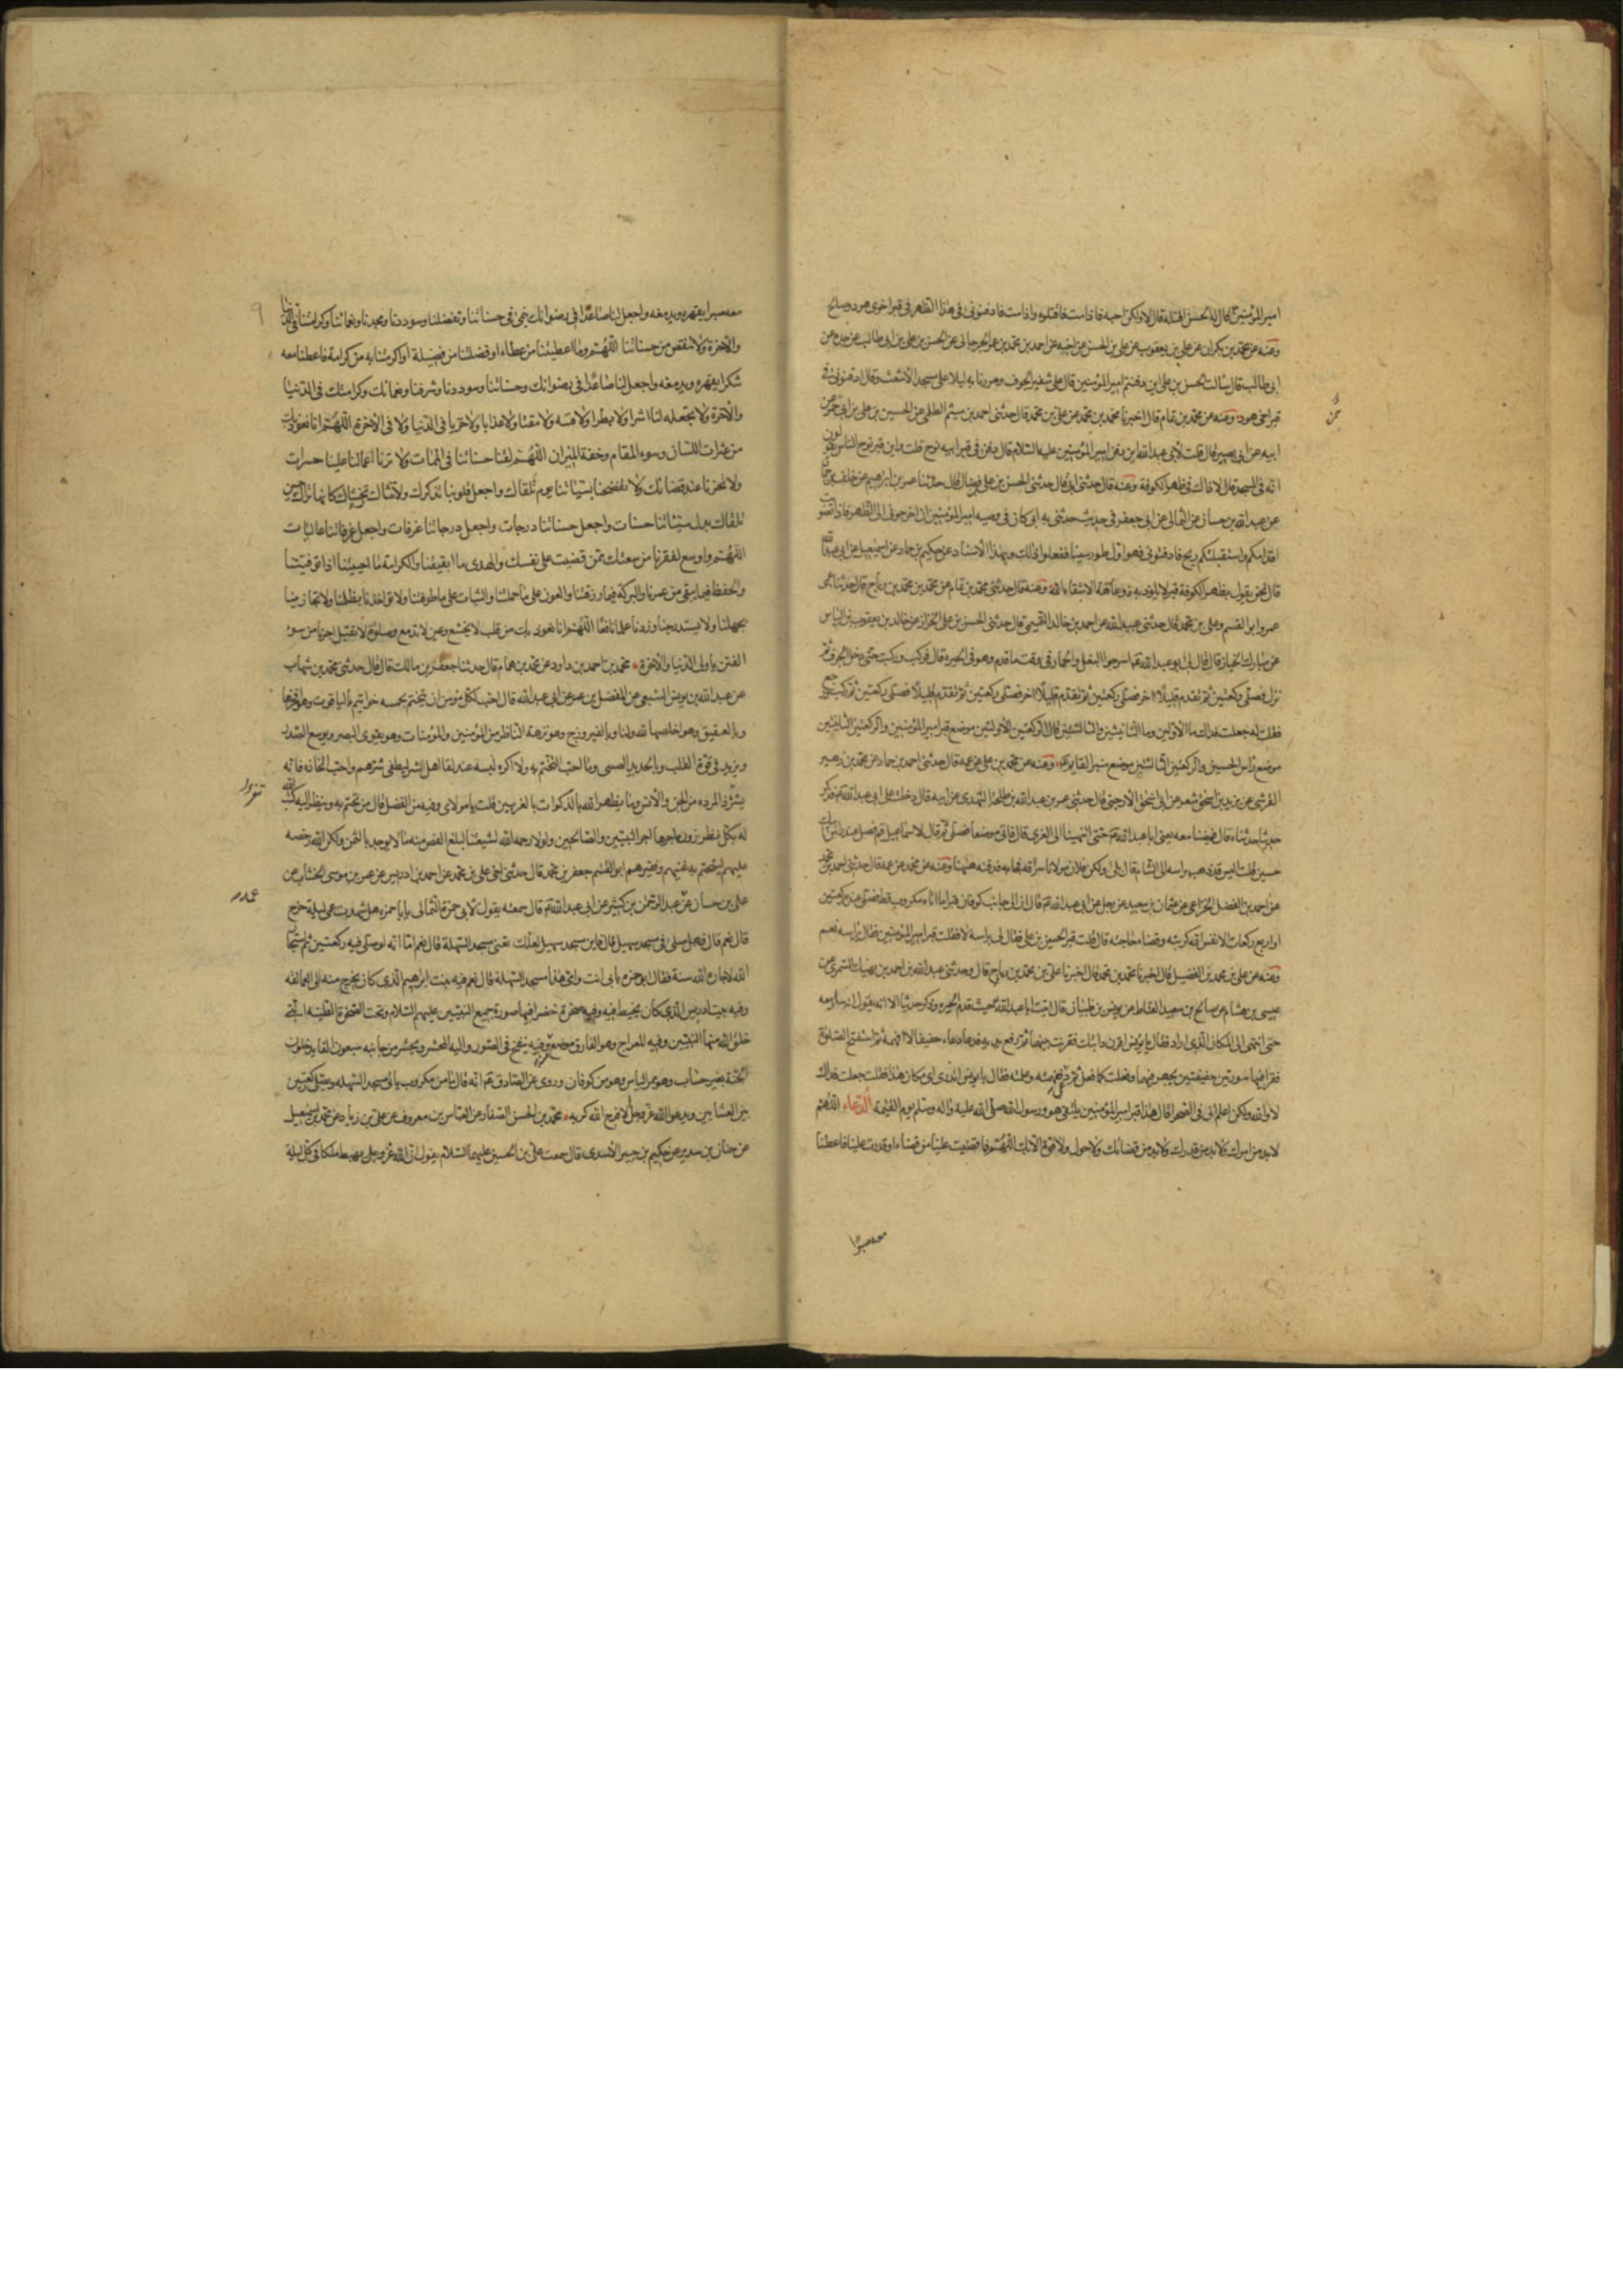 امير المؤمنين قال له الحسن اقتله قال لا ولكن احبسه فاذا مت فاقتلوه واذا مت فادفنوني في هذا الظهر في قبر اخوي هود وصالح
وعنه عن محمد بن بكران عن علي بن يعقوب عن علي بن الحسن عن اخيه عن احمد بن محمد بن عمر الجرجاني عن الحسن بن علي بن ابي طالب عن جده
ابي طالب قال سالت الحسن بن علي اين دفنتم امير المؤمنين قال على شفير الجرف ومررنا به ليلا على مسجد الاشعث وقال ادفنوني في
قبر اخي هود وعنه عن محمد بن تمام قال اخبرنا محمد بن محمد عن علي بن محمد قال حدثني احمد بن ميثم الطلحي عن الحسين بن علي بن ابي حمزة عن
ابيه عن ابي بصير قال قلت لابي عبد الله اين دفن امير المؤمنين عليه السلام قال دفن في قبر ابيه نوح قلت واين قبر نوح الناس يقولون
انه في المسجد قال لا ذاك في ظهر الكوفة وعنه قال حدثني ابي قال حدثني الحسن بن علي بن فضال قال حدثنا عمرو بن ابراهيم عن خلف بن حماد
عن عبد الله بن حسان عن الثمالي عن ابي جعفر في حديث حدثني به ابي كان في وصيه امير المؤمنين ان اخرجوني الى الظهر فاذا تصوبت
اقدامكم واستقبلتكم ريح فادفنوني فهو اول طور سينا ففعلوا ذلك وبهذا الاسناد عن حكيم بن حماد عن اسمعيل عن ابي عبد الله
قال نحن نقول بظهر الكوفة قبر لا يلوذ به ذو عاهة الا شفاه الله وعنه قال حدثني محمد بن تمام عن محمد بن محمد بن رباح قال حدثنا عمي
عمرو ابو القسم وعلي بن محمد قال حدثني عبيد الله عن احمد بن خالد التميمي قال حدثني الحسن بن علي الخزاز عن خالد بن يعقوب بن الياس
عن مبارك الخباز قال قال لي ابو عبد الله ع اسرجوا البغل والحمار في وقت ما قدم وهو في الحيره قال فركب وركبت حتى دخل الجرف ثم
نزل فصلى ركعتين ثم تقدم قليلا اخر فصلى ركعتين ثم تقدم قليلا اخر فصلى ركعتين ثم تقدم قليلا فصلى ركعتين ثم ركب ورجع
فقلت له جعلت فداك ما الاولين وما الثانيتين والثالثتين قال الركعتين الاولتين موضع قبر امير المؤمنين والركعتين الثانيتين
موضع راس الحسين والركعتين الثالثتين موضع منبر القايم ع وعنه عن محمد بن علي عن عمه قال حدثني احمد بن حماد عن محمد بن زهير
القرشي عن يزيد بن اسحق شعر عن ابي اسحق الارجني قال حدثني عمر بن عبد الله بن طلحة النهدي عن ابيه قال دخلت على ابي عبد الله ع فذكر
حديثا حدثناه قال فمضينا معه يعني ابا عبد الله ع حتى انتهينا الى الغري قال فاتى موضعا فصلى ثم قال لاسماعيل قم فصل عند راس ابيك
حسين قلت اليس قد ذهب براسه الى الشام قال بلى ولكن فلان مولانا سرقه فجاء به فدفنه ههنا وعنه عن محمد عن عمه قال حدثني احمد بن محمد
عن احمد بن الفضل الخزاعي عن عثمان بن سعيد عن رجل عن ابي عبد الله ع قال ان الى جانب كوفان قبرا ما اتاه مكروب قط فصلى عنده ركعتين
او اربع ركعات الا نفس الله كربته وقضا حاجته قال قلت قبر الحسين بن علي فقال لي براسه لا فقلت قبر امير المؤمنين فقال براسه نعم
وعنه عن علي بن محمد بن الفضيل قال اخبرنا محمد بن محمد قال اخبرنا علي بن محمد بن رباح قال وحدثني عبد الله بن احمد بن نهيك السمري عن
عيسى بن هشام عن صالح بن سعيد القماط عن يونس بن ظبيان قال اتيت ابا عبد الله ع حيث قدم الحيره وذكر حديثا الا انه يقول انه سار معه
حتى انتهى الى المكان الذي اراد فقال يا يونس اقرن دابتك فقرنت بينهما ثم رفع يديه فدعا دعاء خفيفا لا افهمه ثم استفتح الصلوة
فقرا فيها سورتين خفيفتين يجهر فيهما وفعلت كما فعل ثم دعا ففهمته وعلمته فقال يا يونس اتدري اي مكان هذا فقلت جعلت فداك
لا والله ولكن اعلم اني في الصحرا قال هذا قبر امير المؤمنين يلتقي هو ورسول الله صلى الله عليه واله وسلم يوم القيمة الدعاء اللهم
لا بد من امرك ولا بد من قدرك ولا بد من قضائك ولا حول ولا قوة الا بك اللهم فما قضيت علينا من قضاء او قدرت علينا فاعطنا
معه صبرا
معه صبرا يقهره ويدمغه واجعل لنا صاعدا في رضوانك ينمي في حسناتنا وتفضلنا وسوددنا ومجدنا ونعمائنا وكرامتنا في الدنيا
والاخرة ولا تنقص من حسناتنا اللهم وما اعطيتنا من عطاء او فضلتنا من فضيلة او اكرمتنا به من كرامة فاعطنا معه
شكرا يقهره ويدمغه واجعل لنا صاعدا في رضوانك وحسناتنا وسوددنا وشرفنا ونعمائك وكرامتك في الدنيا
والاخرة ولا تجعله لنا اشرا ولا بطرا ولا فتنه ولا مقتا ولا عذابا ولا خزيا في الدنيا ولا في الاخرة اللهم انا نعوذ بك
من عثرات اللسان وسوء المقام وخفة الميزان اللهم لقنا حسناتنا في الممات ولا ترنا اعمالنا علينا حسرات
ولا تخزنا عند قضائك ولا تفضحنا بسيئاتنا يوم نلقاك واجعل قلوبنا تذكرك ولا تنساك تخشاك كانها تراك حين
نلقاك بدل سيئاتنا حسنات واجعل حسناتنا درجات واجعل درجاتنا غرفات واجعل غرفاتنا عاليات
اللهم واوسع لفقرنا من سعتك ممن قضيت على نفسك والهدى ما ابقيتنا والكرامة ما احييتنا اذا توفيتنا
والحفظ فيما بقي من عمرنا والبركة فيما رزقتنا والعون على ما حملتنا والثبات على ما طوقتنا ولا تواخذنا بظلمنا ولا تجازينا
بجهلنا ولا تستدرجنا وزدنا علما نافعا اللهم انا نعوذ بك من قلب لا يخشع وعين لا تدمع وصلوة لا تقبل اجرنا من سوء
الفتن يا ولي الدنيا والاخرة محمد بن احمد بن داود عن محمد بن همام قال حدثنا جعفر بن مالك قال قال حدثني محمد بن شهاب
عن عبد الله بن يونس السبيعي عن المفضل بن عمر عن ابي عبد الله قال احب لكل مؤمن ان يتختم بخمسه خواتيم بالياقوت وهو افخرها
وبالعقيق وهو اخلصها لله ولنا وبالفيروزج وهو نزهة الناظر من المؤمنين والمؤمنات وهو يقوي البصر ويوسع الصدر
ويزيد في قوة القلب وبالحديد الصيني وما احب التختم به ولا اكره لبسه عند لقا اهل الشر ليطفي شرهم واحب اتخاذه فانه
يشرد المرده من الجن والانس وبما يظهر الله بالذكوات بالغريين قلت يا مولاي وفيه من الفضل قال من تختم به ونظر اليه كتب الله
له بكل نظر زورة اجرها اجر النبيين والصالحين ولولا رحمه الله لشيعتنا لبلغ الفص منه ما لا يوجد بالثمن ولكن الله رخصه
عليهم ليتختم به غنيهم وفقيرهم ابو القسم جعفر بن محمد قال حدثني اخي علي بن محمد عن احمد بن ادريس عن عمر بن موسى الخشاب عن
علي بن حسان عن عبد الرحمن بن كثير عن ابي عبد الله ع قال سمعته يقول لابي حمزة الثمالي يا ابا حمزه هل شهدت عمي ليلة خرج
قال نعم قال فهل صلى في مسجد سهيل قال واين مسجد سهيل لعلك تعني مسجد السهلة قال نعم اما انه لو صلى فيه ركعتين ثم استجار
الله لاجاره الله سنة فقال ابو حمزه بابي انت وامي هذا مسجد السهلة قال نعم فيه بيت ابراهيم الذي كان يخرج منه الى العمالقه
وفيه بيت ادريس الذي كان يخيط فيه وفيه صخرة خضرا فيها صورة جميع النبيين عليهم السلام وتحت الصخرة الطينه التي
خلق الله منها النبيين وفيه المعراج وهو الفاروق موضع وفيه ينفخ في الصور واليه المحشر ويحشر من جانبه سبعون الفا يدخلون
الجنة بغير حساب وهو ممر الناس وهو من كوفان وروي عن الصادق ع انه قال ما من مكروب ياتي مسجد السهله ويصلي ركعتين
بين العشاءين ويدعو الله عز وجل الا فرج الله كربه محمد بن الحسن الصفار عن العباس بن معروف عن علي بن زياد عن محمد بن اسمعيل
عن حنان بن سدير عن حكيم بن جبير الاسدي قال سمعت علي بن الحسين عليهما السلام يقول ان الله عز وجل يهبط ملكا في كل ليلة